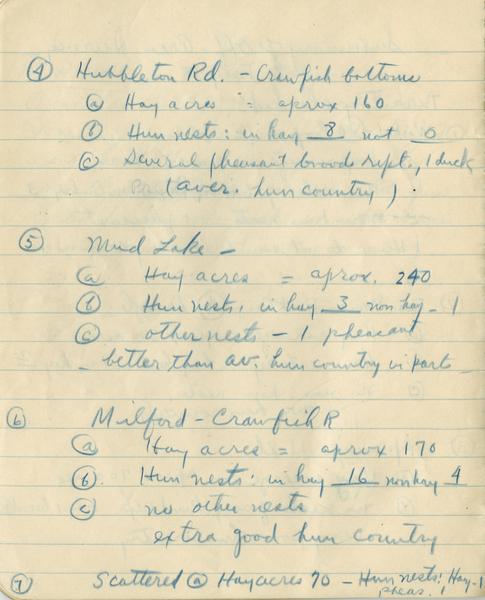 ④ Hubbleton Rd. - Crawfish bottoms
ⓐ Hay acres = aprox 160
ⓑ Hun nests: in hay 8 not 0
ⓒ Several pheasant broods rept., 1 duck
(aver. hun country)
⑤ Mud Lake -
ⓐ Hay acres = aprox. 240
ⓑ Hun nests, in hay 3 non hay - 1
ⓒ other nests - 1 pheasant
- better than av. hun country in parts -
⑥ Milford - Crawfish R
ⓐ Hay acres = aprox 170
ⓑ Hun nests: in hay 16 non hay 4
ⓒ no other nests
extra good hun country
⑦ Scattered ⓐ Hay acres 70 - Hun nests: Hay-1
pheas. 1